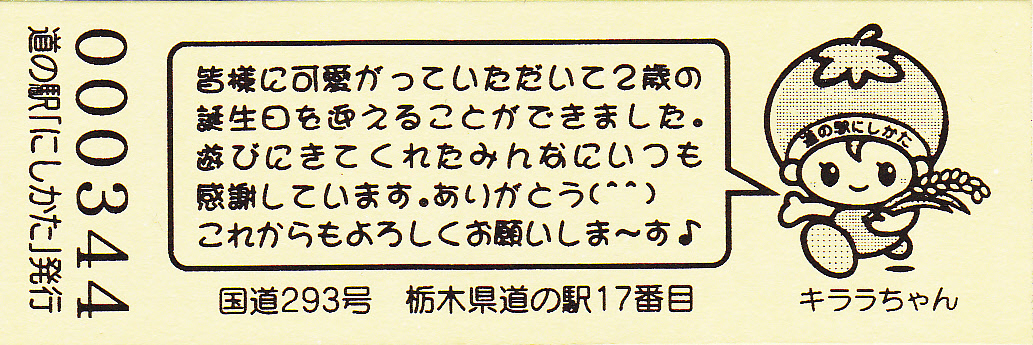 00344
道の駅「にしかた」発行
皆様に可愛がっていただいて2歳の
誕生日を迎えることができました。
遊びにきてくれたみんなにいつも
感謝しています。ありがとう(^^)
これからもよろしくお願いしま〜す♪
道の駅にしかた
国道293号 栃木県道の駅17番目
キララちゃん